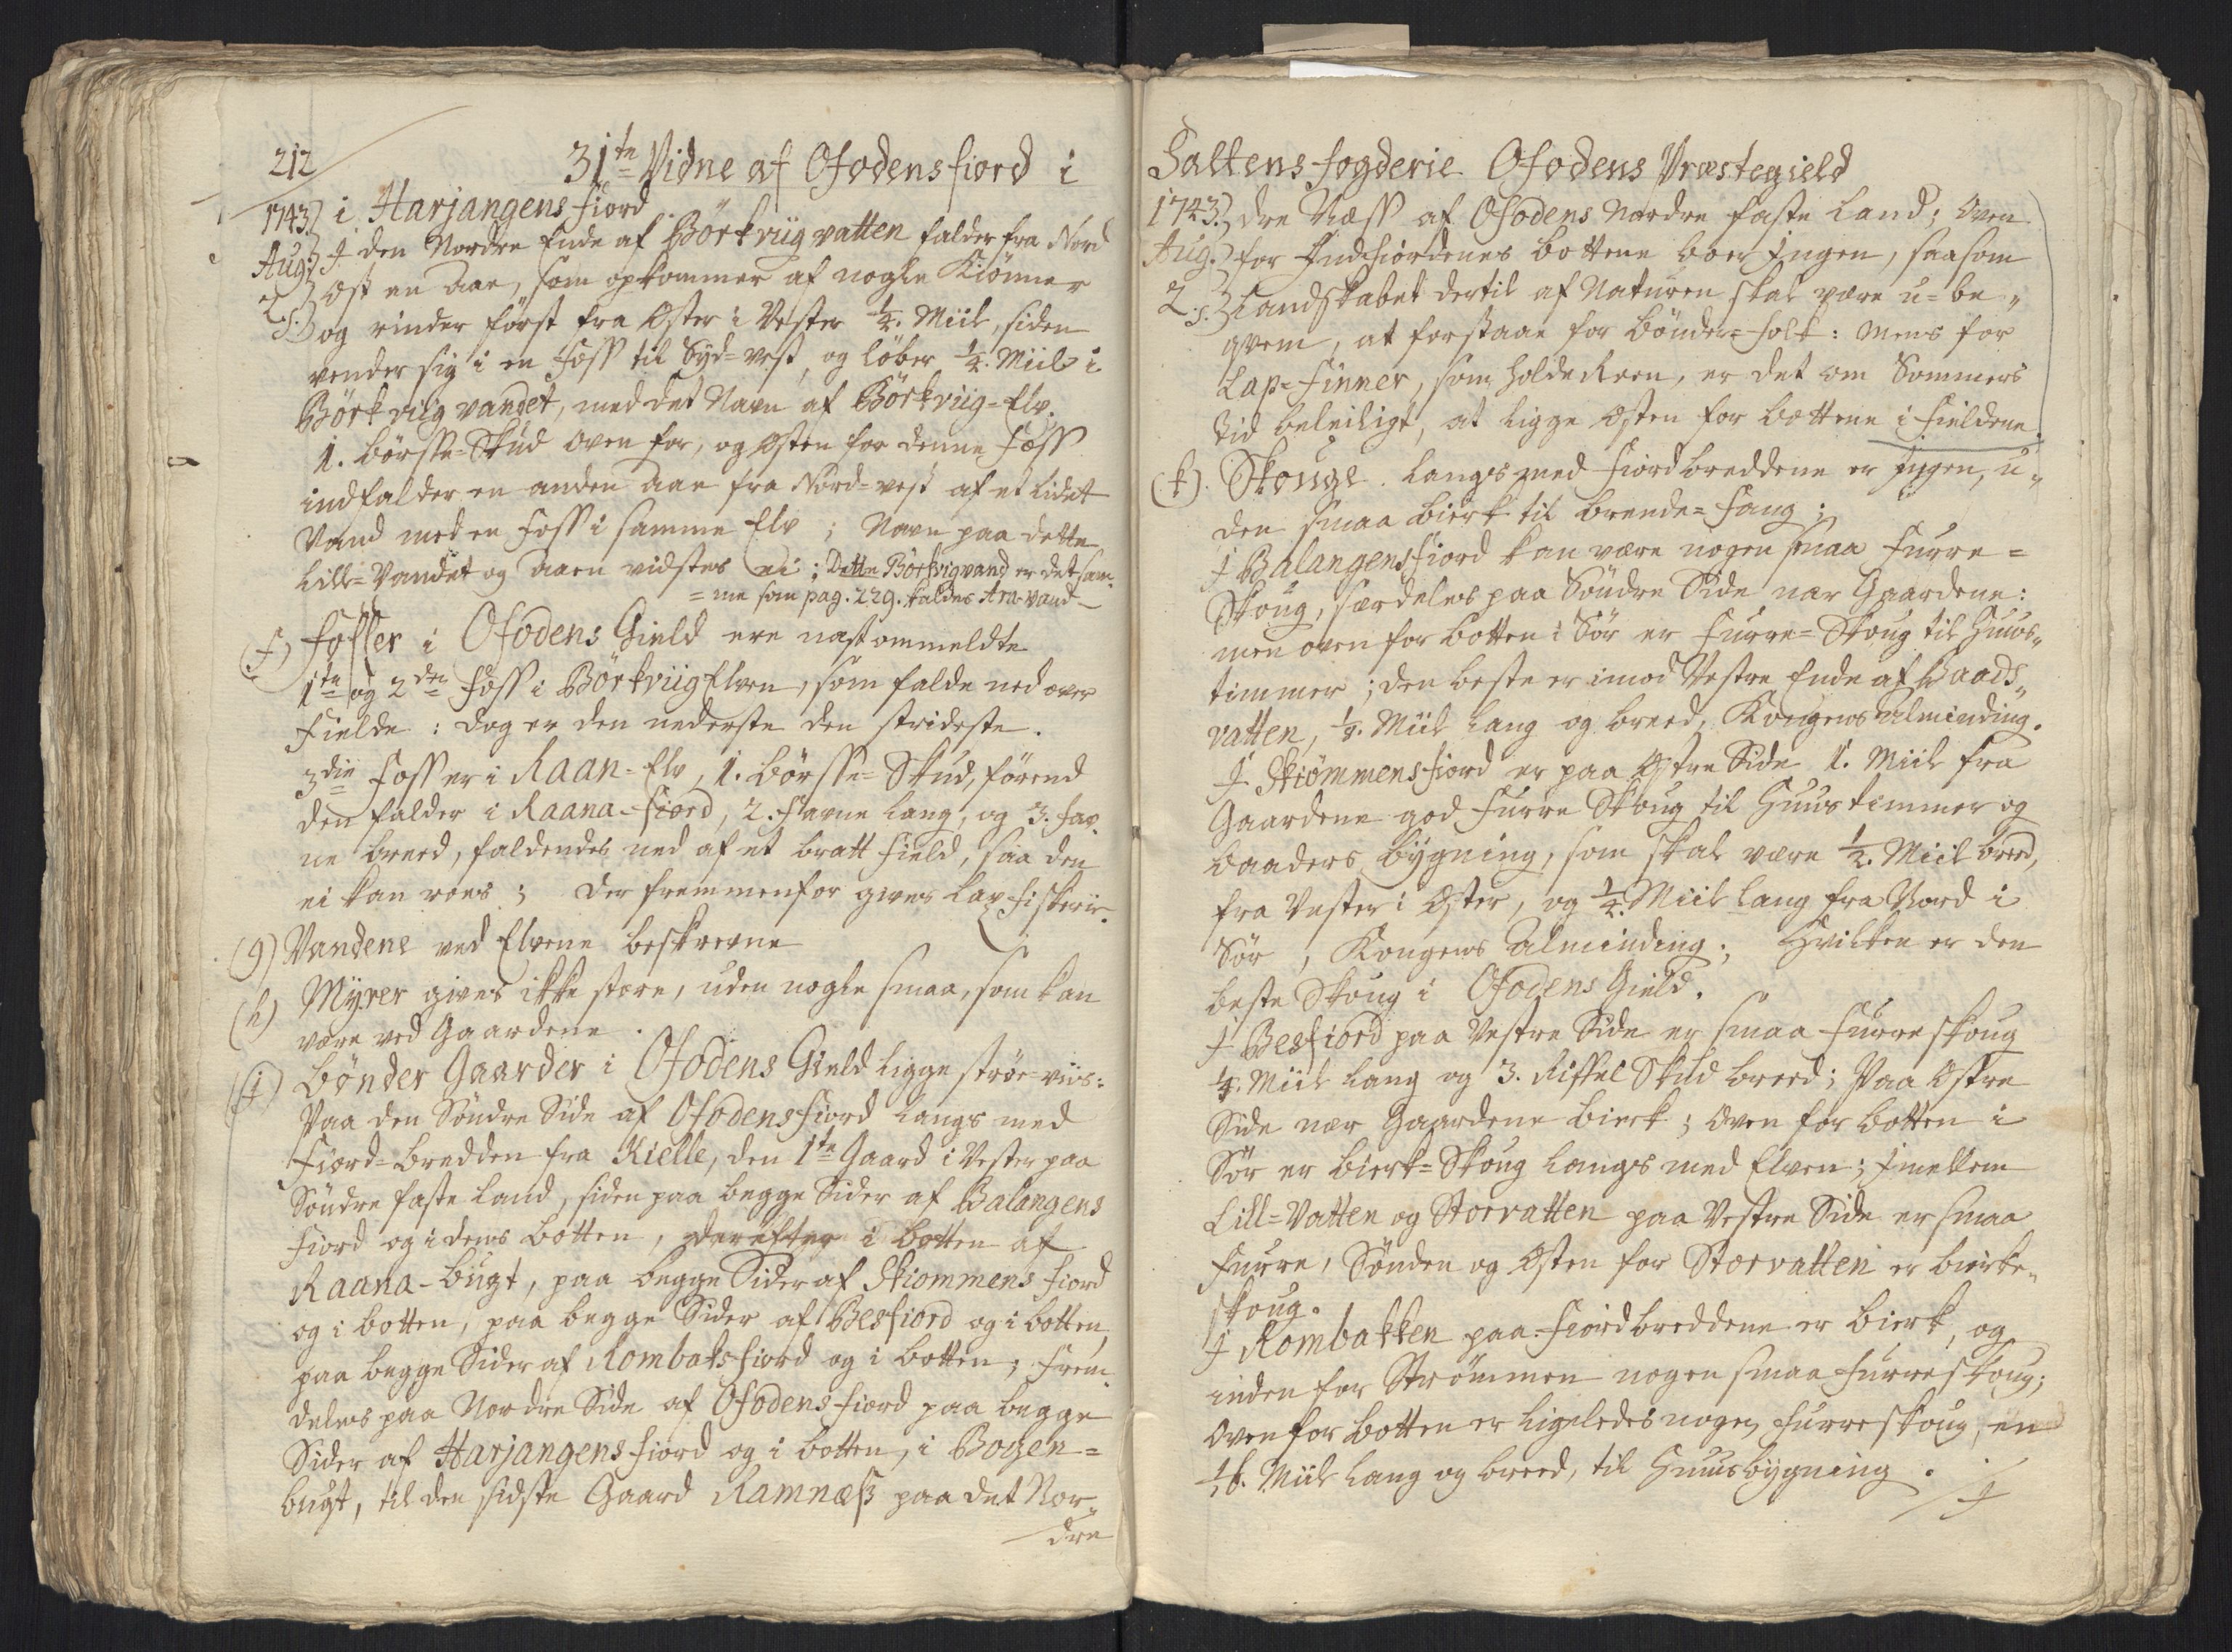 212
31te Vidne af Ofodensfiord i
1743. i Harjangensfiord
Aug: I den Nordre Ende af Börkviigvatten falder fra Nord
2. Ost en Aae, som opkommer af nogle Kiönner
s. og rinder först fra Oster i Vester 1/4. Miil, siden
vender sig i en Foss til Syd-vest, og löber 1/4. Miil i
Börkviigvandet, med det Navn af Börkviig-Elv.
1. börsse-Skud oven for, og Osten for denne Foss
indfalder en anden Aae fra Nord-vest af et lidet
Vand med en Foss i samme Elv; Navn paa dette
Lill-Vandet og Aaen vidstes ei; Dette Börkvigvand er det sam-
=me som pag. 229. kaldes Ara-vand
(f) Fosser i Ofodens Gield ere nast ommeldte
1te og 2den Foss i BörkviigElven, som falde ned over
Fielde: dog er den nederste den strideste.
3die Foss er i Raan-Elv, 1. börsse-Skud, förend
den falder i Raana-fiord, 2. Favne lang, og 3. fav-
ne breed, faldendes ned af et bratt Field, saa den
ei kan roes; der fremmenfor gives Lax-fiskerie.
(g) Vandene ved Elvene beskrevne
(h) Myrer gives ikke store, uden nogle smaa, som kan
være ved Gaardene.
(i) Bönder Gaarder i Ofodens Gield ligge ströe-viis:
Paa den Söndre Side af Ofodensfiord langs med
Fiord-bredden fra Kielle, den 1te Gaard i Vester paa
Söndre faste Land, siden paa begge Sider af Balangens
Fiord og i dens botten, derefter i botten af
Raana-bugt, paa begge Sider af Skiommensfiord
og i botten, paa begge Sider af Besfiord og i botten,
paa begge Sider af Rombaksfiord og i botten; Frem-
deles paa Nordre Side af Ofodensfiord paa begge
Sider af Harjangensfiord og i botten, i Bogen=
bugt, til den sidste Gaard Ramnæss paa det Nor-
dre
Saltens fogderie Ofodens Præstegield
1743. dre Næss af Ofodens Nordre faste Land; Oven
Aug. for Indfiordenes bottene boer Ingen, saasom
2. s. Landskabet dertil af Naturen skal være u-be-
qvem, at forstaae for bönder-folk: mens for
Lap-Finner, som holde Reen, er det om Sommers
Tid beleiligt, at ligge Osten for bottene i Fieldene.
(k). Skouge langs med Fiordbreddene er ingen, u-
den smaa bierk til brende-fang;
I Balangensfiord kan være nogen smaa Furre=
Skoug, særdeles paa Söndre Side nær Gaardene:
men oven for botten i Sör er Furre-Skoug til Huus-
timmer; den beste er imod Vestre Ende af Baads-
vatten, 1/8. Miil lang og breed, Kongens Alminding.
I Skiömmensfiord er paa Ostre Side 1. Miil fra
Gaardene god Furre Skoug til Huustimmer og
baaders bygning, som skal være 1/2. Miil breed,
fra Vester i Oster, og 1/4. Miil lang fra Nord i
Sör, Kongens Alminding; Hvilken er den
beste Skoug i Ofodens Gield.
I Besfiord paa Vestre Side er smaa Furreskoug
1/4. Miil lang og 3. Riffel Skud breed; Paa Ostre
Side nær Gaardene bierk; Oven for botten i
Sör er bierk-Skoug langs med Elven; imellem
Lill-Vatten og Storvatten paa Vestre Side er smaa
Furre, Sönden og Osten for Storvatten er bierke-
skoug.
I Rombakken paa Fiordbreddene er bierk, og
inden for Strömmen nogen smaa Furreskoug;
Oven for botten er ligeledes nogen Furreskoug, en
1/6. Miil lang og breed, til Huusbygning.
I